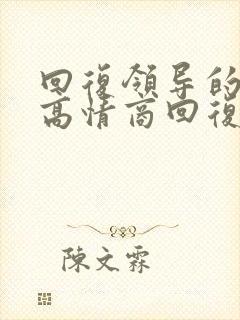 回復領导的
高情商回復
陳文霖